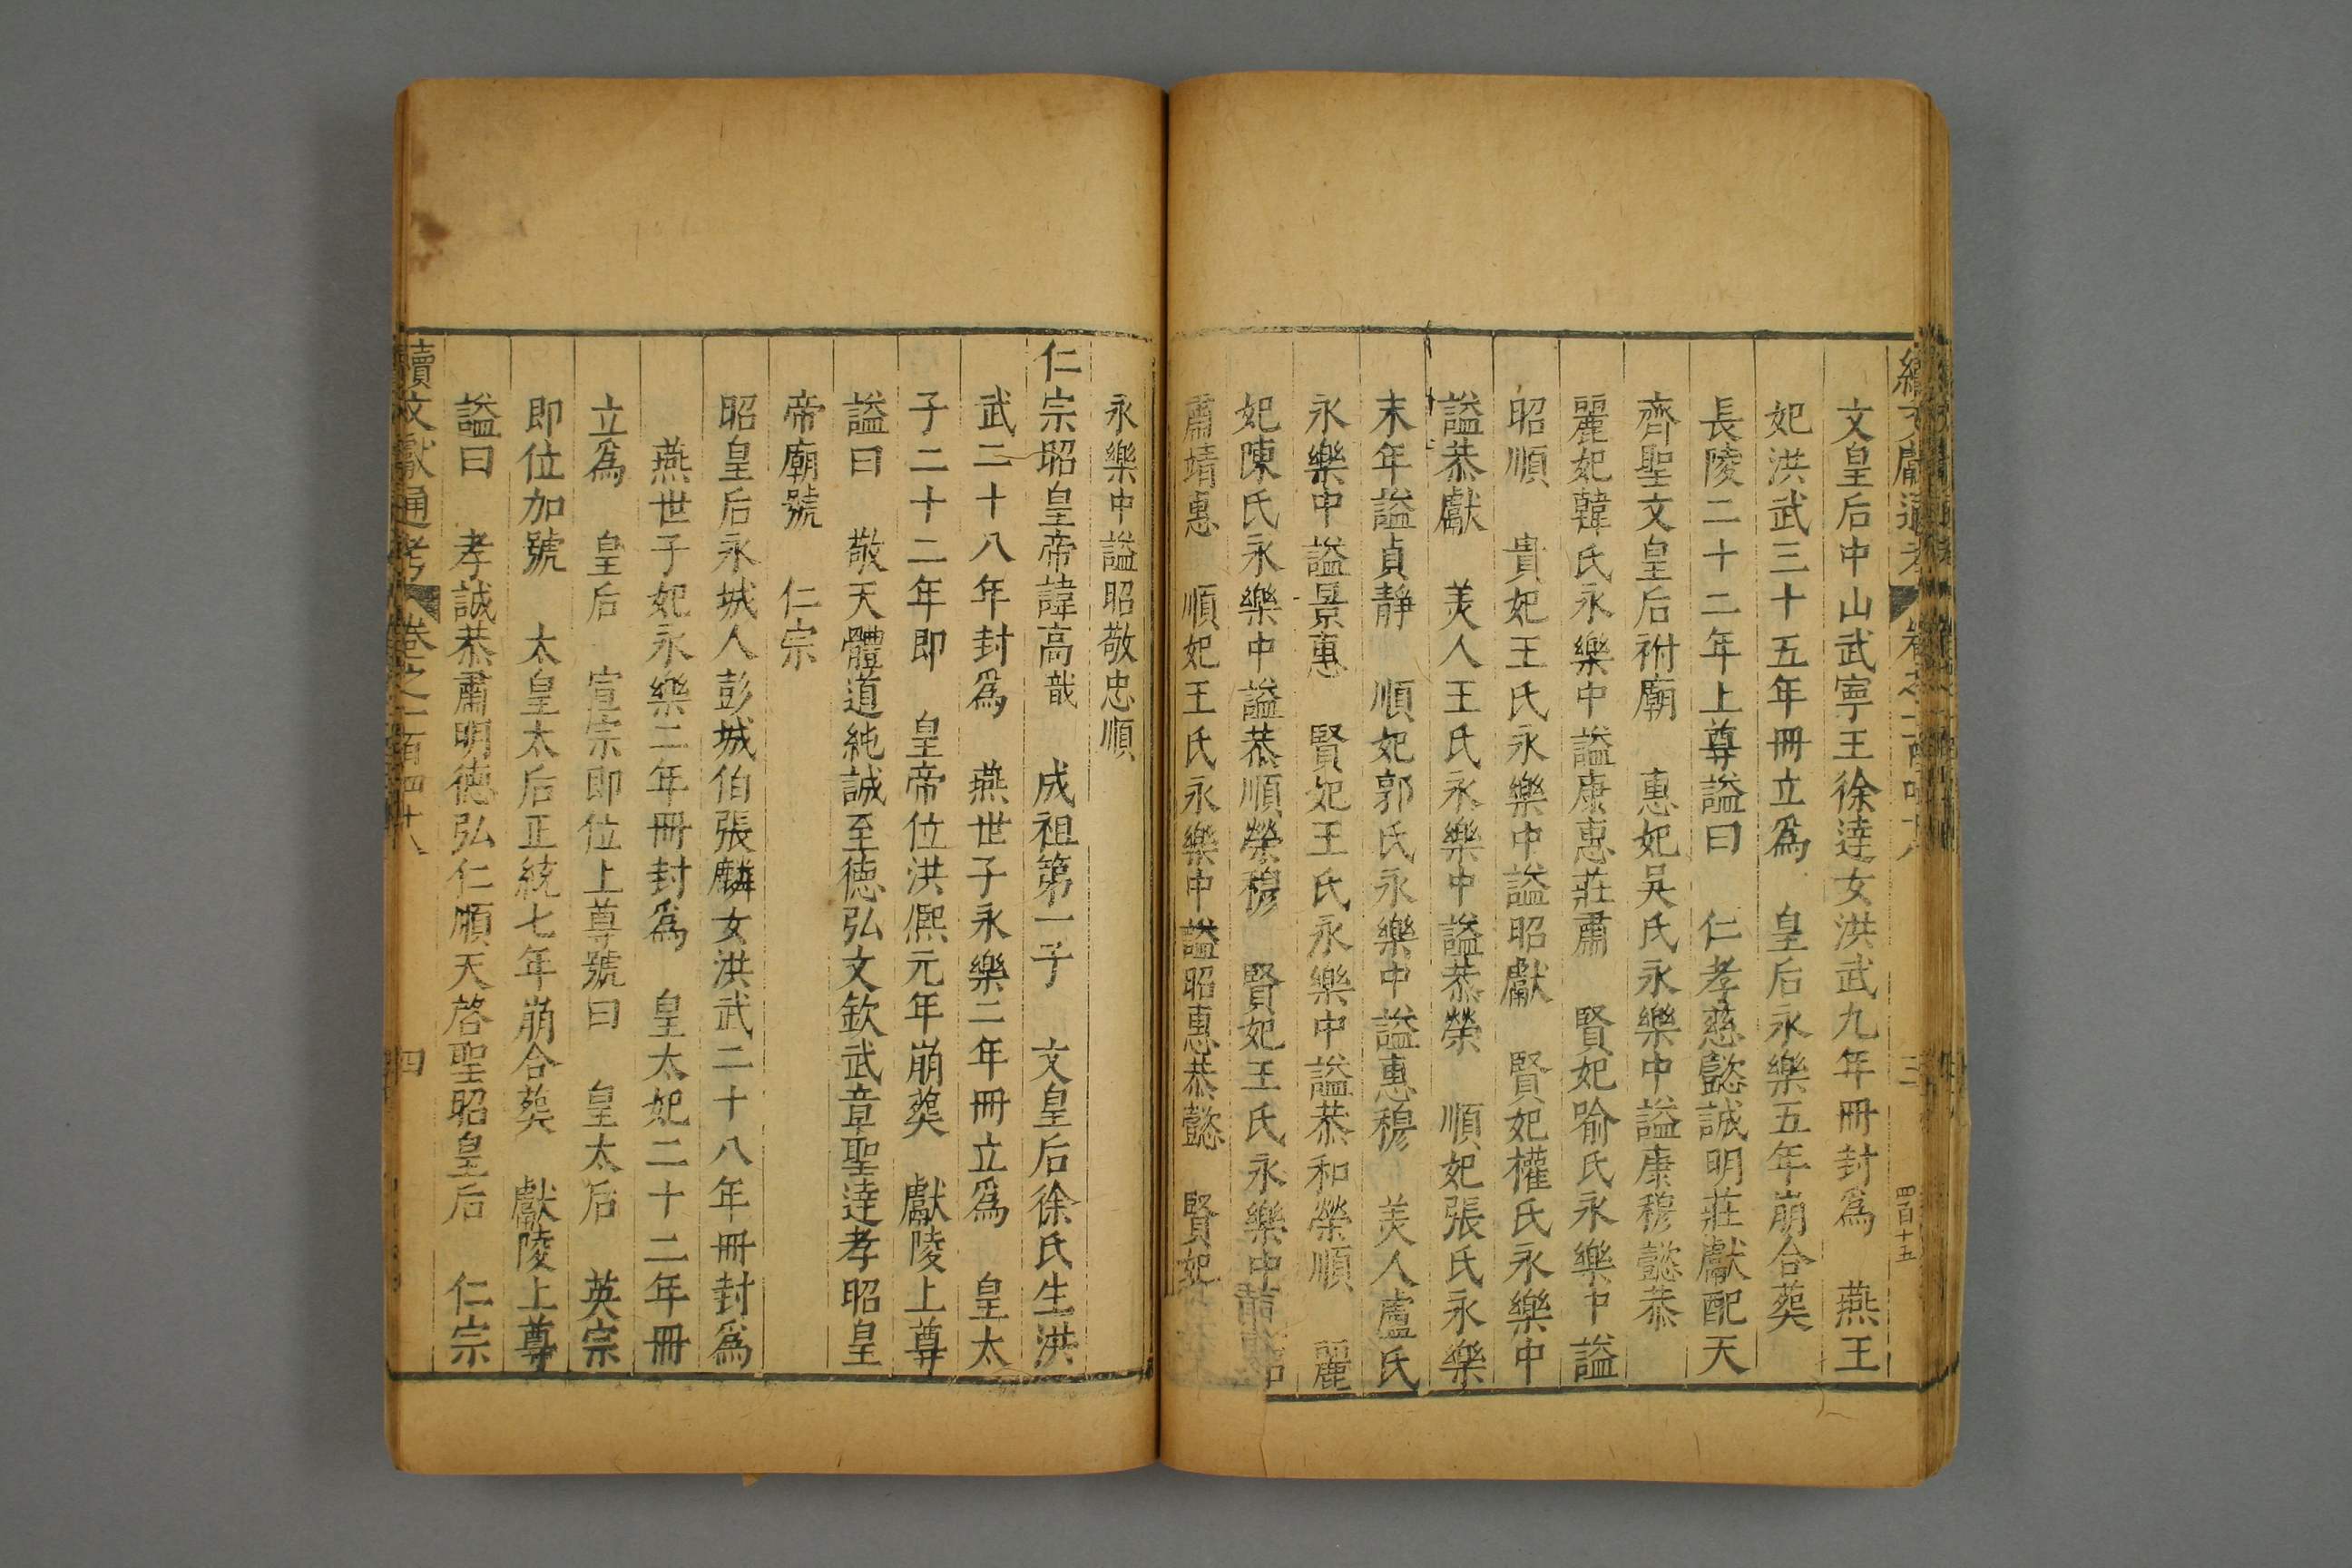 續文獻通考 卷之二百四十八 三 四百十五
文皇后中山武寧王徐達女洪武九年冊封爲 燕王
妃洪武三十五年冊立爲 皇后永樂五年崩合葬
長陵二十二年上尊謚曰 仁孝慈懿誠明莊獻配天
齊聖文皇后祔廟 惠妃吳氏永樂中謚康穆懿恭
麗妃韓氏永樂中謚康惠莊肅 賢妃喻氏永樂中謚
昭順 貴妃王氏永樂中謚昭獻 賢妃權氏永樂中
謚恭獻 美人王氏永樂中謚恭榮 順妃張氏永樂
末年謚貞靜 順妃郭氏永樂中謚惠穆 美人盧氏
永樂中謚景惠 賢妃王氏永樂中謚恭和榮順 麗
妃陳氏永樂中謚恭順榮穆 賢妃王氏永樂中
肅靖惠 順妃王氏永樂中謚昭惠恭懿 賢妃
永樂中謚昭敬忠順
仁宗昭皇帝諱高哉 成祖第一子 文皇后徐氏生洪
武二十八年封爲 燕世子永樂二年冊立爲 皇太
子二十二年即 皇帝位洪熙元年崩葬 獻陵上尊
謚曰 敬天體道純誠至德弘文欽武章聖達孝昭皇
帝廟號 仁宗
昭皇后永城人彭城伯張麟女洪武二十八年冊封爲
燕世子妃永樂二年冊封爲 皇太妃二十二年冊
立爲 皇后 宣宗即位上尊號曰 皇太后 英宗
即位加號 太皇太后正統七年崩合葬 獻陵上尊
謚曰 孝誠恭肅明德弘仁順天啓聖昭皇后 仁宗
續文獻通考 卷之二百四十八 四